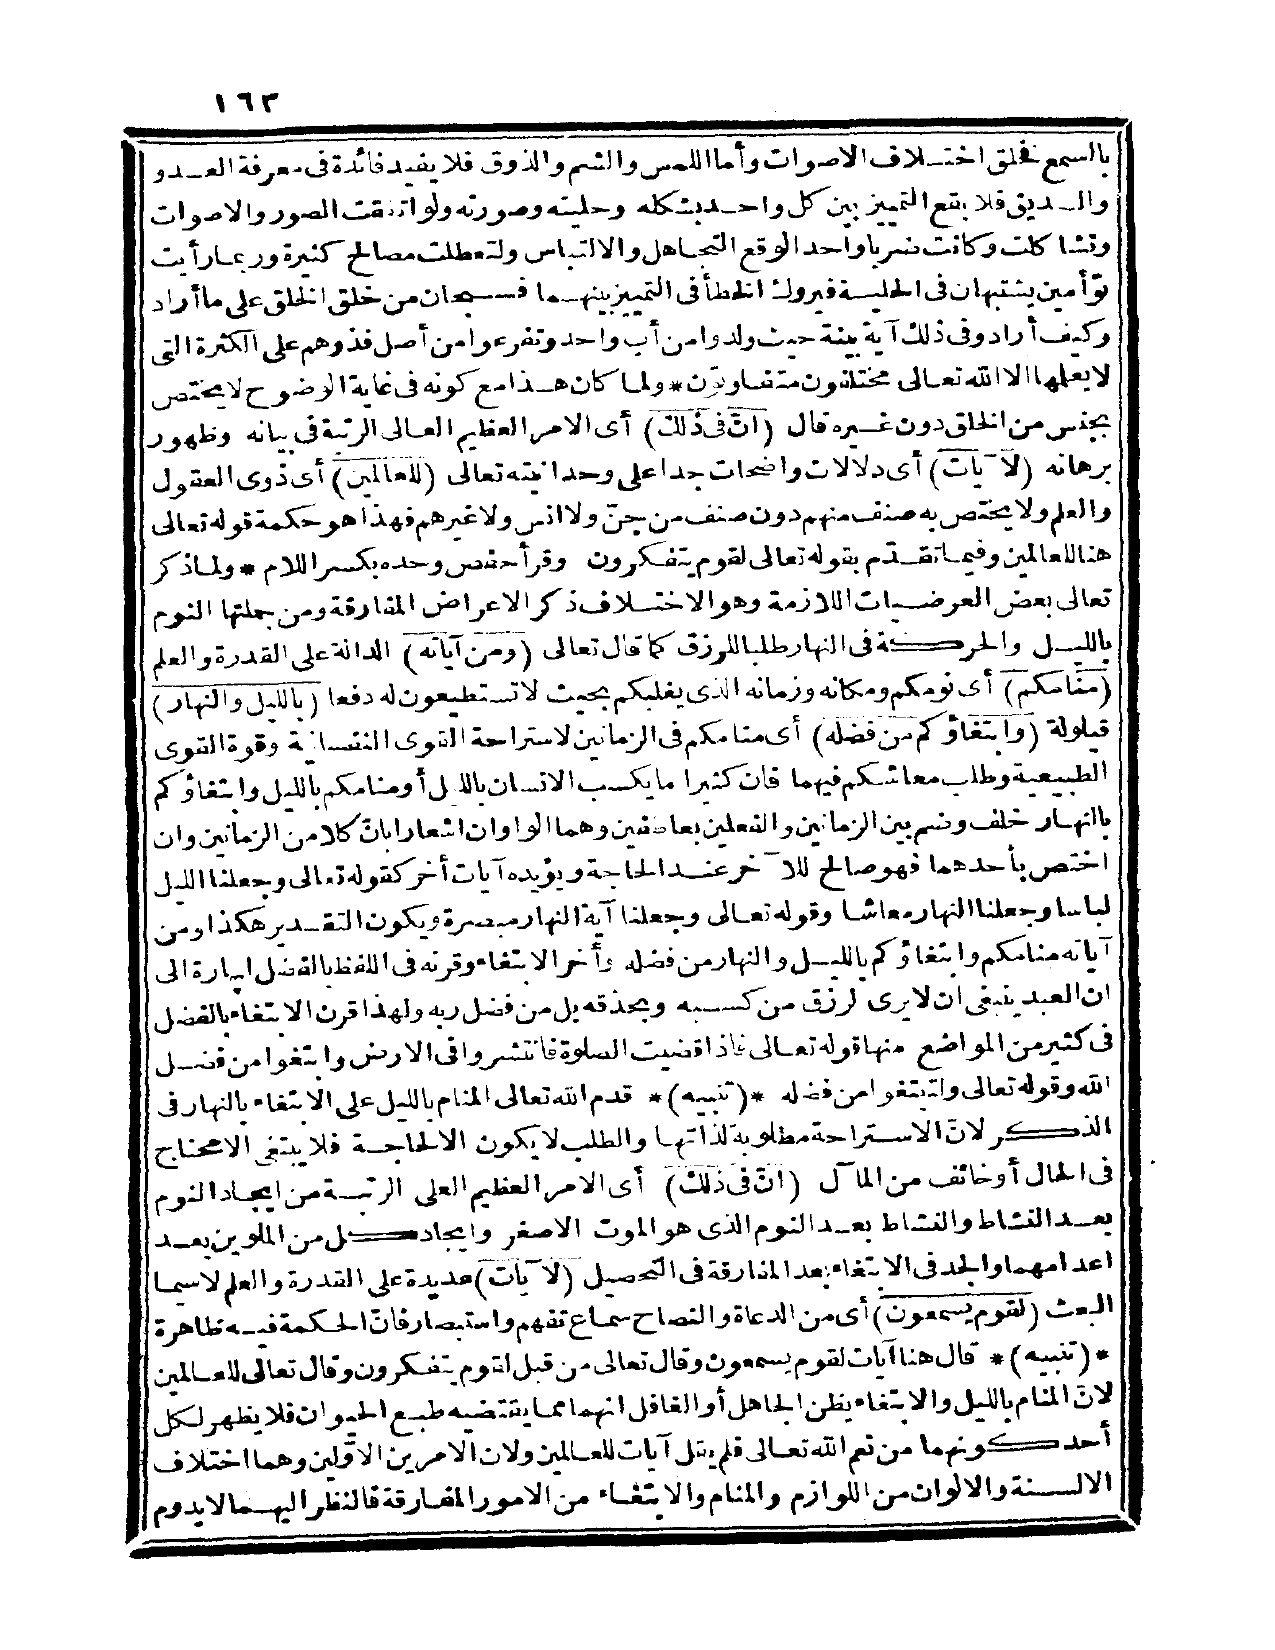 ١٦٣
بالسمع فخلق اختلاف الاصوات وأما اللمس والشم والذوق فلا يفيد فائدة فى معرفة العدو
والصديق فلا يقع التمييز بين كل واحد بشكله وحليته وصورته ولو اتفقت الصور والاصوات
وتشا كلت وكانت ضربا واحد الوقع التجاهل والالتباس ولتعطلت مصالح كثيرة وربمارأيت
توأمين يشتبهان فى الحلية فيروك الخطأ فى التمييز بينهما فسبحان من خلق الخلق على ما أراد
وكيف أراد وفى ذلك آية بينة حيث ولدوا من أب واحد وتفرعوا من أصل فذ وهم على الكثرة التى
لا يعلمها الا الله تعالى مختلفون متفاوتون * ولما كان هذا مع كونه فى غاية الوضوح لا يختص
بجنس من الخلق دون غيره قال (ان فى ذلك) أى الامر العظيم العالى الرتبة فى بيانه وظهور
برهانه (لآيات) أى دلالات واضحات جدا على وحدانيته تعالى (للعالمين) أى ذوى العقول
والعلم ولا يختص به صنف منهم دون صنف من جنّ ولا انس ولا غيرهم فهذا هو حكمة قوله تعالى
هنا للعالمين وفيما تقدّم بقوله تعالى لقوم يتفكرون وقرأ حفص وحده بكسر اللام * ولما ذكر
تعالى بعض العرضيات اللازمة وهو الاختلاف ذكر الاعراض المفارقة ومن جملتها النوم
بالليل والحركة فى النهار طلبا للرزق كما قال تعالى (ومن آياته) الدالة على القدرة والعلم
(منامكم) أى نومكم ومكانه وزمانه الذى يغلبكم بحيث لا تستطيعون له دفعا (بالليل والنهار)
قيلولة (وابتغاؤكم من فضله) أى منامكم فى الزمانين لاستراحة القوى النفسانية وقوة القوى
الطبيعية وطلب معاشكم فيهما فان كثيرا ما يكسب الانسان بالليل أو منامكم بالليل وابتغاؤكم
بالنهار خلف وضم بين الزمانين والفعلين بعاطفين وهما الواوان اشعارا بانّ كلا من الزمانين وان
اختص بأحدهما فهو صالح للآخر عند الحاجة ويؤيده آيات أخر كقوله تعالى وجعلنا الليل
لباسا وجعلنا النهار معاشا وقوله تعالى وجعلنا آية النهار مبصرة ويكون التقدير هكذا ومن
آياته منامكم وابتغاؤكم بالليل والنهار من فضله وأخر الابتغاء وقرنه فى اللفظ بالفضل اشارة الى
ان العبد ينبغى ان لا يرى لرزق من كسبه وبحذقه بل من فضل ربه ولهذا قرن الابتغاء بالفضل
فى كثير من المواضع منها قوله تعالى فاذا قضيت الصلوة فانتشروا فى الارض وابتغوا من فضل
الله وقوله تعالى ولتبتغوا من فضله *(تنبيه)* قدم الله تعالى المنام بالليل على الابتغاء بالنهار فى
الذكر لانّ الاستراحة مطلوبة لذاتها والطلب لا يكون الا لحاجة فلا يبتغى الا محتاج
فى الحال أو خائف من المآل (انّ فى ذلك) أى الامر العظيم العلى الرتبة من ايجاد النوم
بعد النشاط والنشاط بعد النوم الذى هو الموت الاصغر وايجاد كل من الملوين بعد
اعدامهما والجد فى الابتغاء بعد المفارقة فى التحصيل (لآيات) عديدة على القدرة والعلم لاسيما
البعث (لقوم يسمعون) أى من الدعاة والنصاح سماع تفهم واستبصار فانّ الحكمة فيه ظاهرة
*(تنبيه)* قال هنا آيات لقوم يسمعون وقال تعالى من قبل لقوم يتفكرون وقال تعالى للعالمين
لانّ المنام بالليل والابتغاء يظن الجاهل أو الغافل انهما مما يقتضيه طبع الحيوان فلا يظهر لكل
أحد كونهما من نعم الله تعالى فلم يقل آيات للعالمين ولان الامرين الاوّلين وهما اختلاف
الالسنة والالوان من اللوازم والمنام والابتغاء من الامور المفارقة فالنظر اليهما لا يدوم